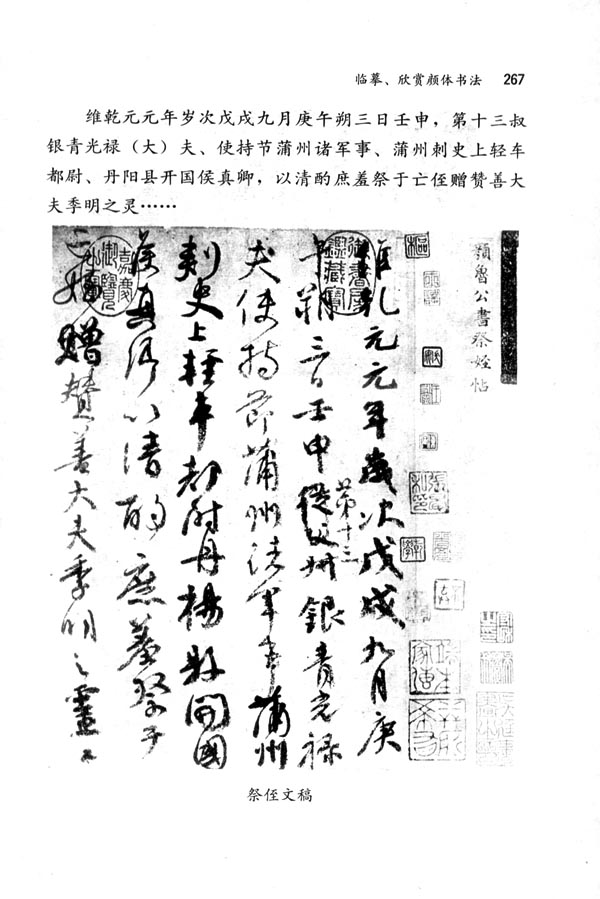 临摹、欣赏颜体书法 267
维乾元元年岁次戊戌九月庚午朔三日壬申，第十三叔
银青光禄（大）夫、使持节蒲州诸军事、蒲州刺史上轻车
都尉、丹阳县开国侯真卿，以清酌庶羞祭于亡侄赠赞善大
夫季明之灵……
顏魯公書祭姪帖
維乾元元年歲次戊戌九月庚
午朔三日壬申第十三從父叔銀青光禄
夫使持節蒲州諸軍事蒲州
刺史上輕車都尉丹楊縣開國
侯真卿以清酌庶羞祭于
亡姪贈贊善大夫季明之靈曰
祭侄文稿